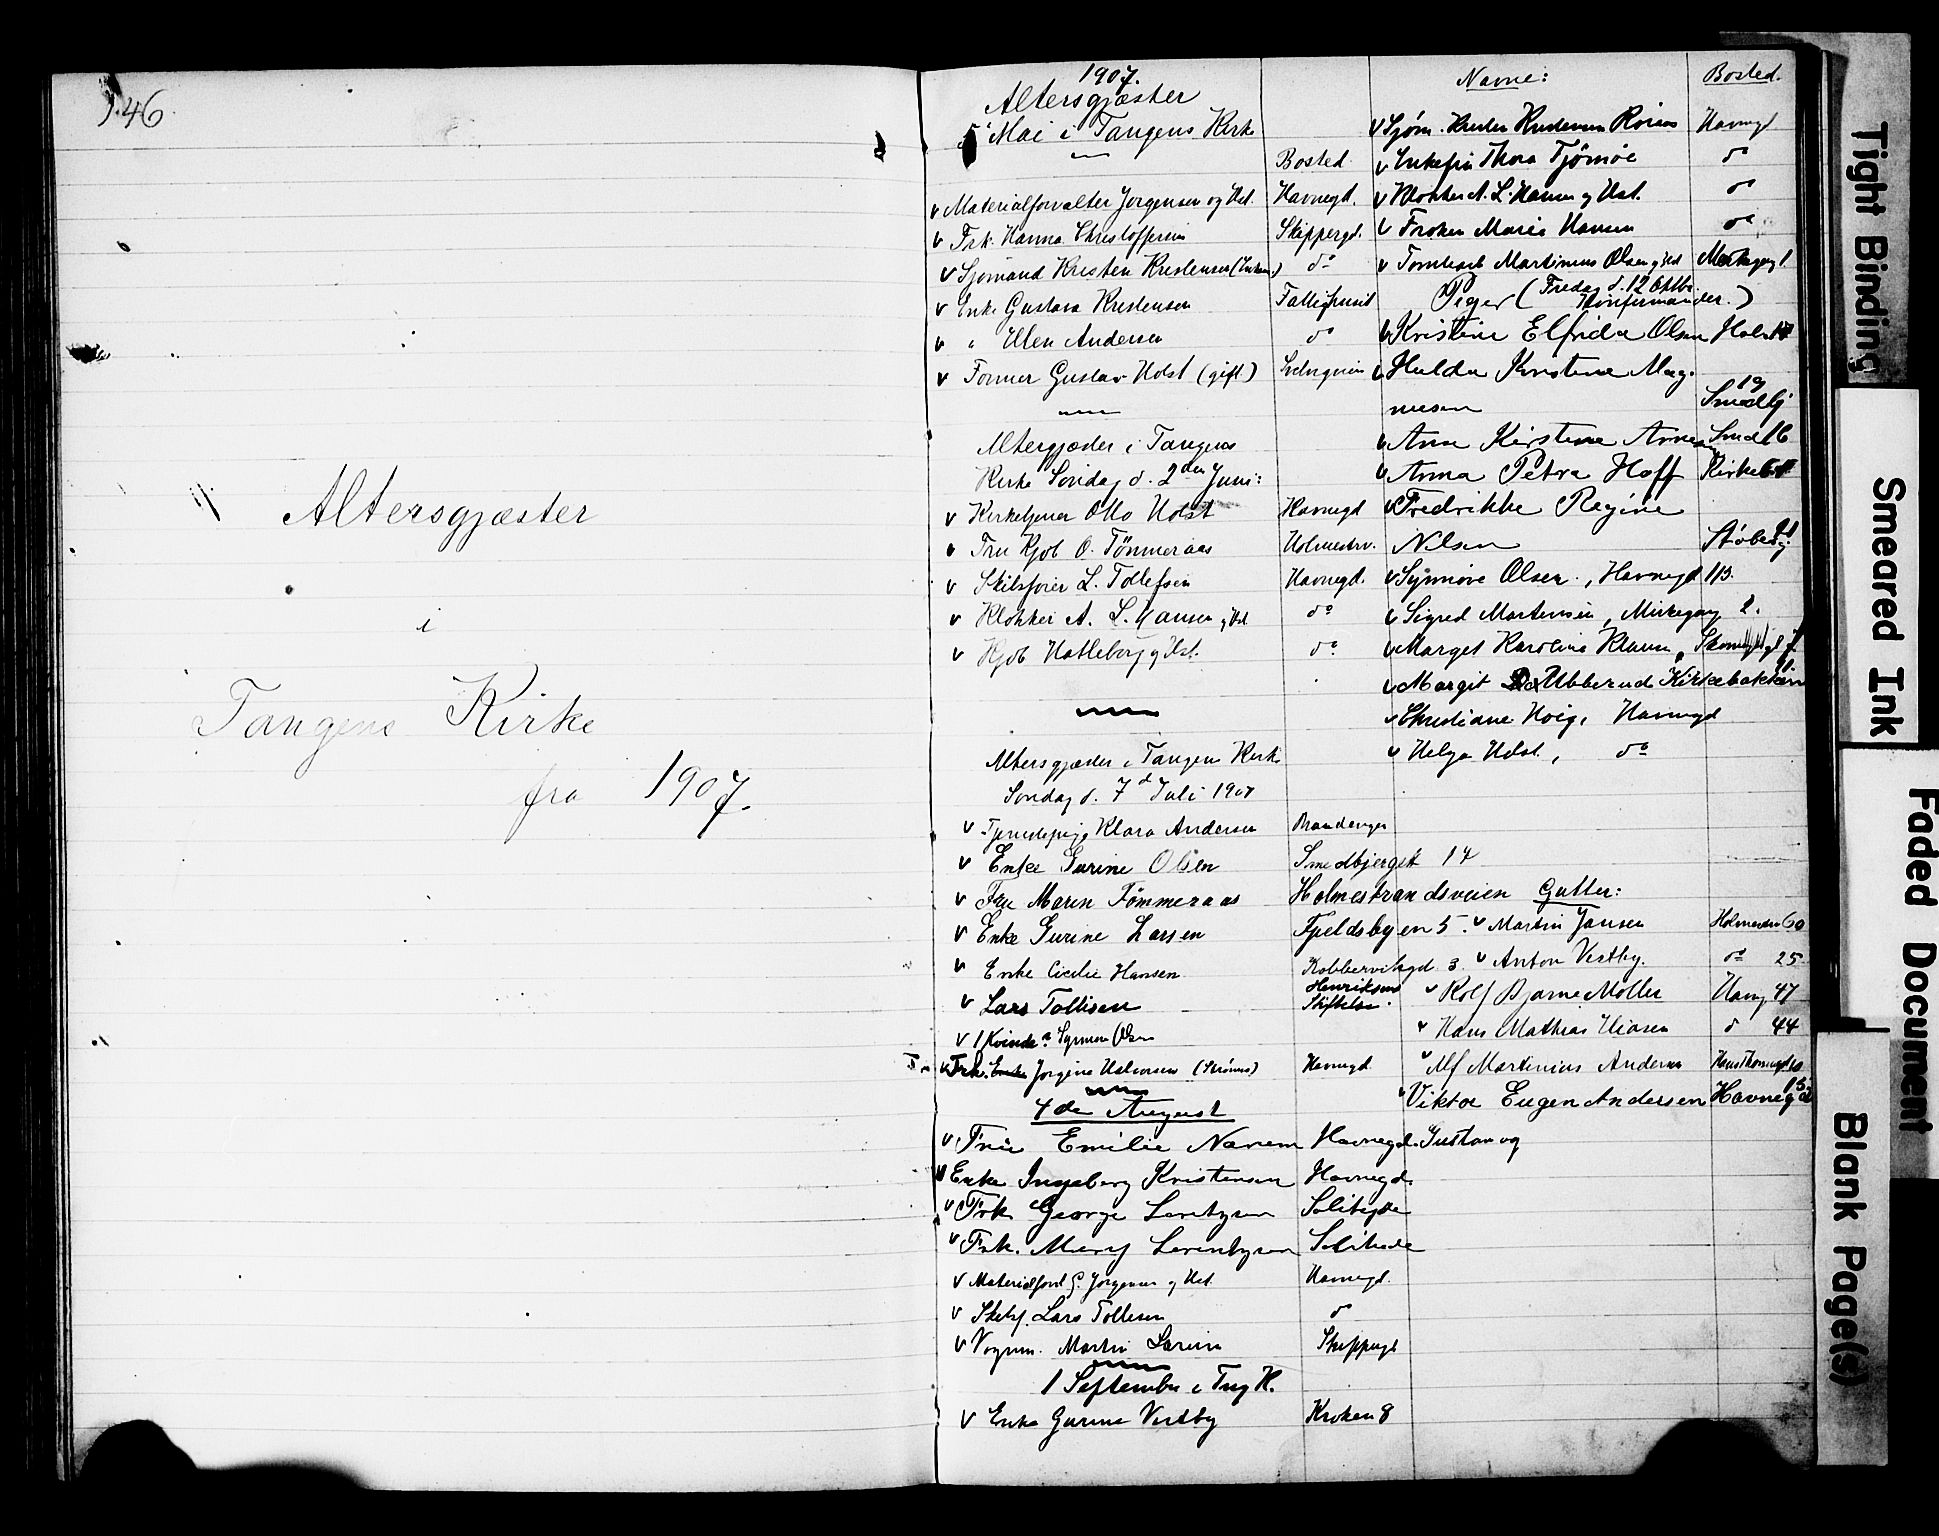 146
Altersgjæster
i
Tangens Kirke
fra 1907.
1907.
Altersgjæster
5 Mai i Tangens Kirk
Bosted
Materialforvalter Jorgensen og Hst. Havnegd.
Frk. Hanna Christoffersen Skippergd.
Sjømand Kristen Kristensen do
Enke Gustava Kristensen Fattighuset
" Ellen Andersen do
Former Gustav Holst (gift)
Altergjæster i Tangens
Kirke Søndag d. 2den Juni:
Kirketjener Otto Holst Havnegd
Fru Kjøb O. Tömmeraas Holmestrv.
Skibsfører L. Tollefsen Havnegd.
Klokker A. L. Hansen og Hst do
Kjøb Hatleborg og Hst. do
Altersgjæster i Tangen Kirk
Søndag d. 7d Juli 1907
Tjenestepige Klara Andersen
Enke Gurine Olsen Smedbjerget 14
Fru Maren Tömmeraas Holmestrandsveien
Enke Gurine Larsen Fjeldsbyen 5.
Enke Cicilie Hansen Kobbervikgd 3.
Lars Tollisen Henriksens Stiftelse.
1 Kvinde
Frk. Enke Jorgine Halvorsen Havnegd.
4de August
Frue Emilie Havnegd.
Enke Ingeborg Kristensen Havnegd.
Frk. George Lorentzen Solityde
Frk. Mary Lorentzen Solitude
Materialforv G. Jorgensen og Hst. Havnegd.
Skibsf. Lars Tollisen do
Vognm. Martin Larsen Skippergd
1 September i Tng K.
Enke Gurine Vestby Kroken 8
Navne: Bosted.
Sjøm. Havnegd
Enkefru Thora Tjömöe do
Klokker A. L. Hansen og Hst. do
Frøken Marie Hansen do
Martinius Olsen og Hst
Piger (Fredag d. 12 Oktbr. Konfirmander.)
Kristine Elfrida Olsen
Hulda Kristine Mag-
nusen Smedbj 19
Anna Kirstine Arnesen Smedb
Anna Petra Hoff Kirkeb
Fredrikke Regine
Nilsen
Synnöve Olsen, Havnegd 113.
Sigred Martinsen, 2.
Margit Karoline Klausen,
Margit Ubberud Kirkebakken
Christiane Höig, Havnegd
Helga Holst, do
Gutter:
Martin Jansen Holmesv 60
Anton Vestby. do 25
Rolf Bjarne Möller Havng 47
Hans Mathias do 44
Alf Martinius Andersen
Viktor Eugen Andersen Havnegd
Gustav og
Tight Binding
Smeared Ink
Faded Document
Blank Page(s)